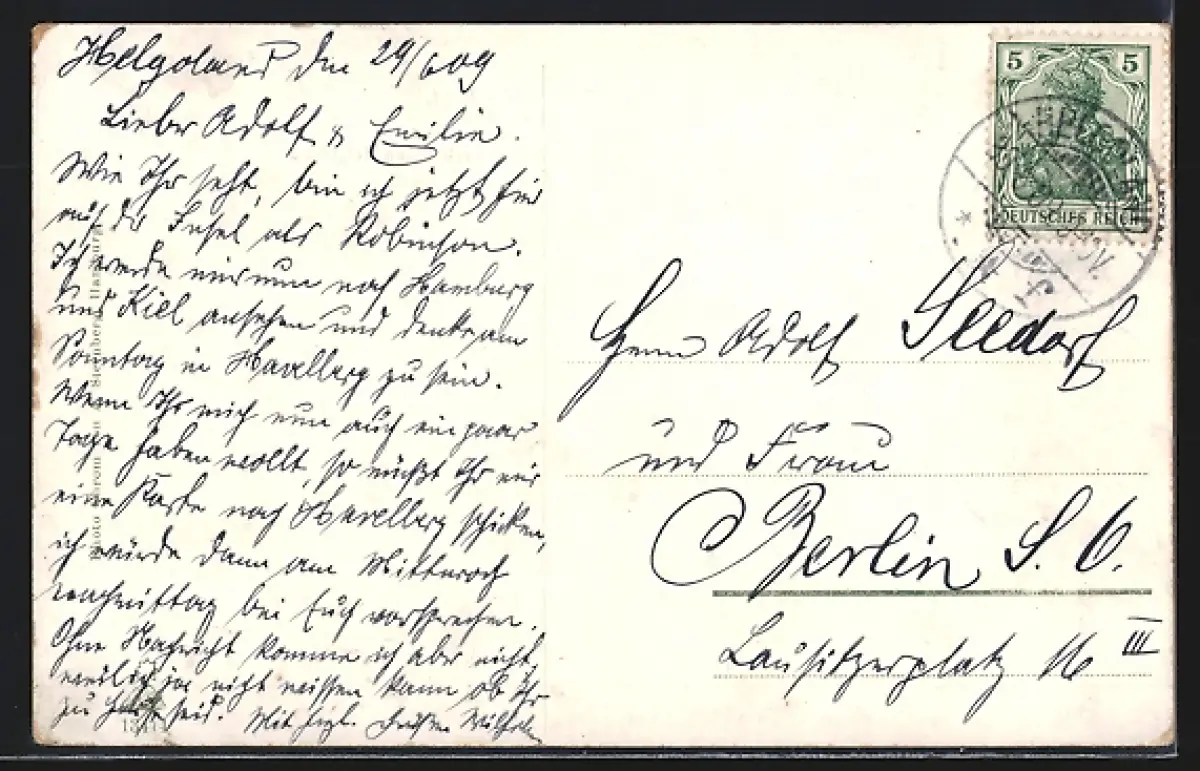 Helgoland den 29/6 09
Lieber Adolf u Emilie.
Wie Ihr seht, bin ich jetzt hier
auf der Insel als Robinson.
Ich werde mir nun noch Hamburg
und Kiel ansehen und denke am
Sonntag in Havelberg zu sein.
Wenn Ihr mich nun auch ein paar
Tage haben wollt, so müßt Ihr mir
eine Karte nach Havelberg schicken,
ich würde dann am Mittwoch
nachmittag bei Euch vorsprechen.
Ohne Nachricht komme ich aber nicht,
weil ich ja nicht wissen kann ob Ihr
zu Hause seid. Mit hzl. Grüßen Wilhelm
5 5
DEUTSCHES REICH
Herrn Adolf Seedorf
und Frau
Berlin S. O.
Lausitzerplatz 16 III